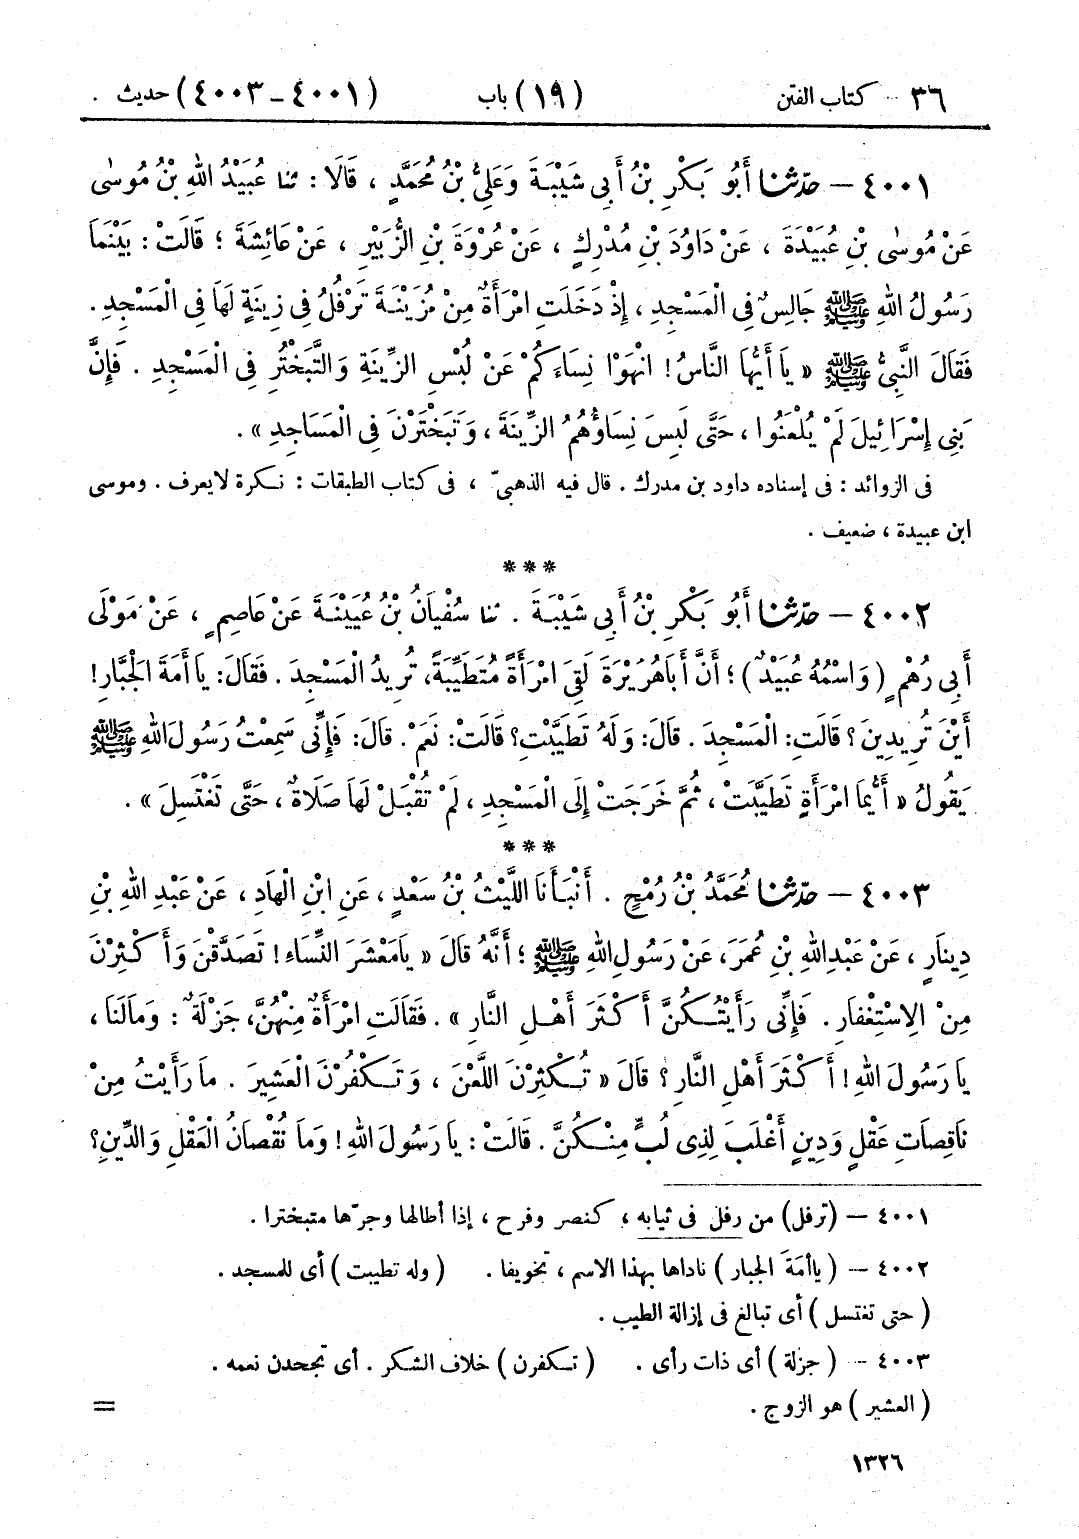 ٣٦ – كتاب الفتن (١٩) باب (٤٠٠١ – ٤٠٠٣) حديث .
٤٠٠١ – حدّثنا أَبُو بَكْرِ بْنُ أَبِى شَيْبَةَ وَعَلِىُّ بْنُ مُحَمَّدٍ ، قَالَا : ثنا عُبَيْدُ اللهِ بْنُ مُوسٰى
عَنْ مُوسٰى بْنِ عُبَيْدَةَ ، عَنْ دَاوُدَ بْنِ مُدْرِكٍ ، عَنْ عُرْوَةَ بْنِ الزُّبَيْرِ ، عَنْ عَائِشَةَ ؛ قَالَتْ : بَيْنَمَا
رَسُولُ اللهِ ﷺ جَالِسٌ فِى الْمَسْجِدِ ، إِذْ دَخَلَتِ امْرَأَةٌ مِنْ مُزَيْنَةَ تَرْفُلُ فِى زِينَةٍ لَهَا فِى الْمَسْجِدِ .
فَقَالَ النَّبِىُّ ﷺ « يَا أَيُّهَا النَّاسُ ! انْهَوْا نِسَاءَكُمْ عَنْ لُبْسِ الزِّينَةِ وَالتَّبَخْتُرِ فِى الْمَسْجِدِ . فَإِنَّ
بَنِى إِسْرَائِيلَ لَمْ يُلْعَنُوا ، حَتَّى لَبِسَ نِسَاؤُهُمُ الزِّينَةَ ، وَتَبَخْتَرْنَ فِى الْمَسَاجِدِ » .
فى الزوائد : فى إسناده داود بن مدرك . قال فيه الذهبىّ ، فى كتاب الطبقات : نكرة لايعرف . وموسى
ابن عبيدة ، ضعيف .
***
٤٠٠٢ – حدّثنا أَبُو بَكْرِ بْنُ أَبِى شَيْبَةَ . ثنا سُفْيَانُ بْنُ عُيَيْنَةَ عَنْ عَاصِمٍ ، عَنْ مَوْلَى
أَبِى رُهْمٍ ( وَاسْمُهُ عُبَيْدٌ ) ؛ أَنَّ أَبَا هُرَيْرَةَ لَقِىَ امْرَأَةً مُتَطَيِّبَةً ، تُرِيدُ الْمَسْجِدَ . فَقَالَ : يَا أَمَةَ الْجَبَّارِ !
أَيْنَ تُرِيدِينَ ؟ قَالَتِ : الْمَسْجِدَ . قَالَ : وَلَهُ تَطَيَّبْتِ ؟ قَالَتْ : نَعَمْ . قَالَ : فَإِنِّى سَمِعْتُ رَسُولَ اللهِ ﷺ
يَقُولُ « أَيُّمَا امْرَأَةٍ تَطَيَّبَتْ ، ثُمَّ خَرَجَتْ إِلَى الْمَسْجِدِ ، لَمْ تُقْبَلْ لَهَا صَلَاةٌ ، حَتَّى تَغْتَسِلَ » .
***
٤٠٠٣ – حدّثنا مُحَمَّدُ بْنُ رُمْحٍ . أَنْبَأَنَا اللَّيْثُ بْنُ سَعْدٍ ، عَنِ ابْنِ الْهَادِ ، عَنْ عَبْدِ اللهِ بْنِ
دِينَارٍ ، عَنْ عَبْدِ اللهِ بْنِ عُمَرَ ، عَنْ رَسُولِ اللهِ ﷺ ؛ أَنَّهُ قَالَ « يَا مَعْشَرَ النِّسَاءِ ! تَصَدَّقْنَ وَأَكْثِرْنَ
مِنْ الِاسْتِغْفَارِ . فَإِنِّى رَأَيْتُكُنَّ أَكْثَرَ أَهْلِ النَّارِ » . فَقَالَتِ امْرَأَةٌ مِنْهُنَّ ، جَزْلَةٌ : وَمَا لَنَا ،
يَا رَسُولَ اللهِ ! أَكْثَرَ أَهْلِ النَّارِ ؟ قَالَ « تُكْثِرْنَ اللَّعْنَ ، وَتَكْفُرْنَ الْعَشِيرَ . مَا رَأَيْتُ مِنْ
نَاقِصَاتِ عَقْلٍ وَدِينٍ أَغْلَبَ لِذِى لُبٍّ مِنْكُنَّ . قَالَتْ : يَا رَسُولَ اللهِ ! وَمَا نُقْصَانُ الْعَقْلِ وَالدِّينِ ؟
٤٠٠١ – (ترفل) من رفل فى ثيابه ، كنصر وفرح ، إذا أطالها وجرّها متبخترا .
٤٠٠٢ – ( ياأمَةَ الجبار ) ناداها بهذا الاسم ، تخويفا . ( وله تطيبت ) أى للمسجد .
( حتى تغتسل ) أى تبالغ فى إزالة الطيب .
٤٠٠٣ – ( جزلة ) أى ذات رأى . ( تكفرن ) خلاف الشكر . أى تجحدن نعمه .
( العشير ) هو الزوج . =
١٣٢٦